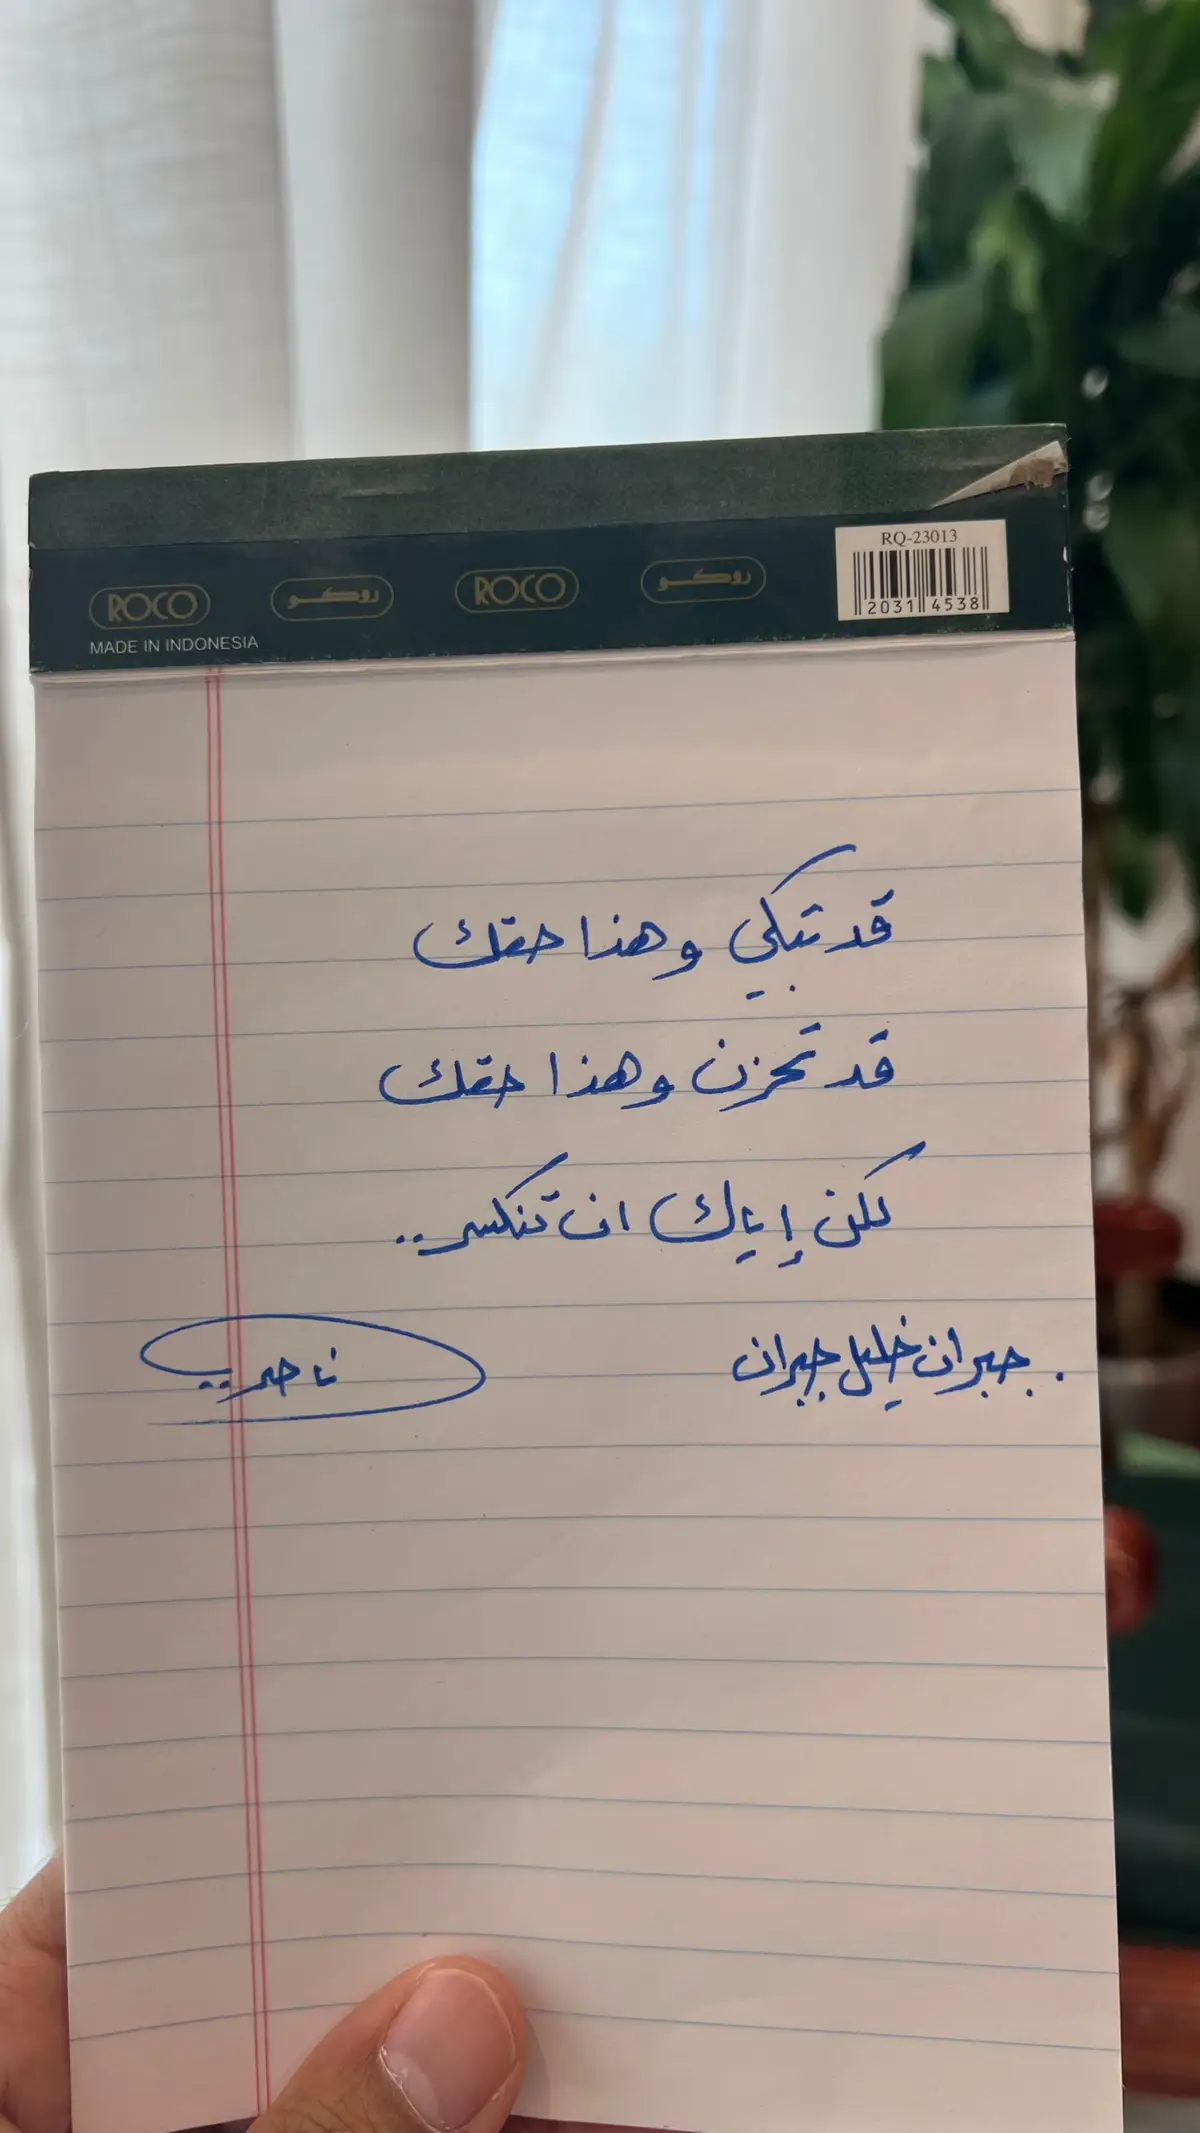 RQ-23013
2031 4538
ROCO روكو ROCO روكو
MADE IN INDONESIA
قد تبكي وهذا حقك
قد تحزن وهذا حقك
لكن إياك ان تنكسر..
. جبران خليل جبران